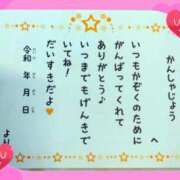 かんしゃじょう
へ
いつもかぞくのために
がんばってくれて
ありがとう♪
いつまでもげんきで
いてね!
だいすきだよ♥
令和 年 月 日
より